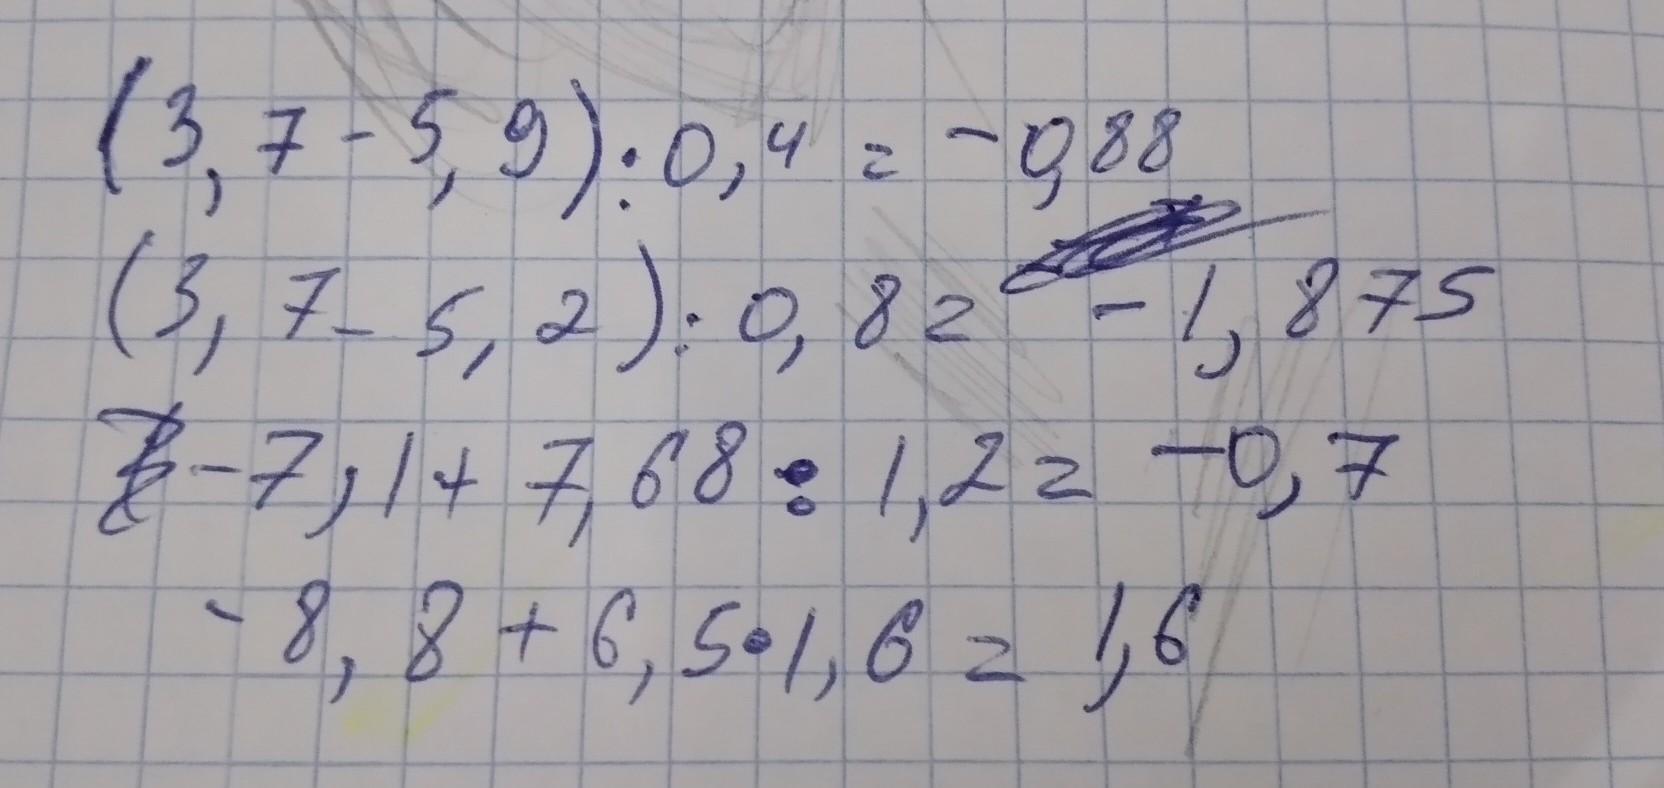 (3,7-5,9):0,4=-0,88
(3,7-5,2):0,8=-1,875
-7,1+7,68:1,2=-0,7
-8,8+6,5•1,6=1,6